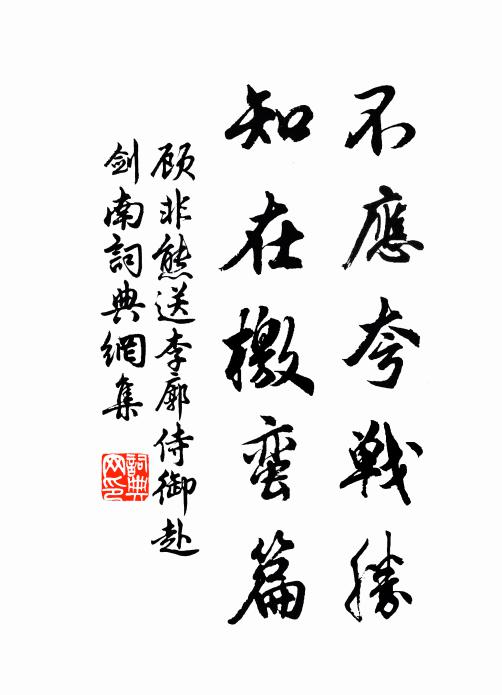 不應夸戰勝
知在檄蛮篇
顾非熊送李廓侍御赴
剑南詞典網集
詞典网印